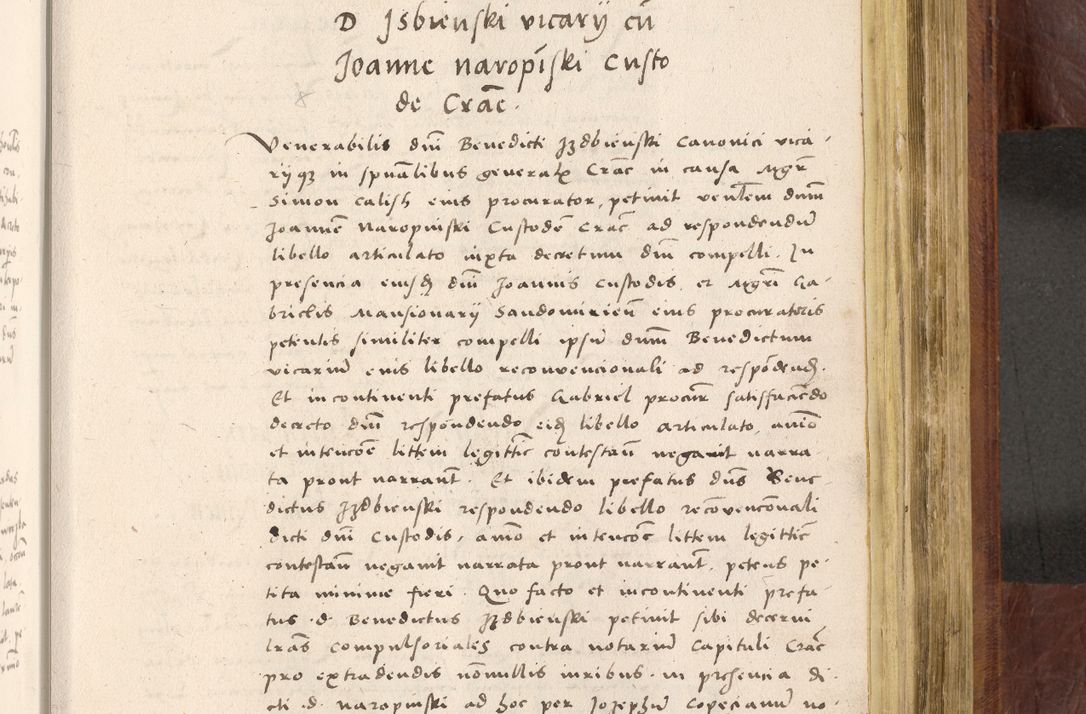 D Jsbienski vicarÿ cū
Joanne naropīski Custo
de Crāc.
Venerabilis dnī Benedicti Jzdbienski Canonici vica-
rÿ qz in spūalibus generalꝭ Crāc in causa Mgr̄
Simon Calish eius procurator, petiuit venl̄em dnm̄
Joannē Naropinski Custodē Crāc ad respondendū
libello articulato iuxta decretum dnī compelli. In
presencia eiusdꝫ dnī Joannis Custodis, et Mgr̄i Ga-
brielis Mansionarÿ Sandomirieñ eius procuratoris
petentis similiter compelli ipsū dnm̄ Benedictum
vicariū eius libello reconuencionali ad respōdendꝫ.
Et incontinenti prefatus Gabriel procur̄ satisfaciēdo
decreto dnī respondendo eidꝫ libello articulato, animō
et intencōe littem legittīe contestañ negauit narra-
ta prout narrant̄. Et ibidem prefatus dnūs Bene-
dictus Jzdbienski respondendo libello recōuencōnali
dicti dnī Custodis, animō et intencōe littem legittīe
contestañ negauit narrata prout narrant̄, petens pe-
tita minime fieri. Quo facto et incontinenti p̄refa-
tus .d. Benedictus Jzdbienski petiuit sibi decerni
lr̄as Compulsoriales contra notariū Capituli Crāc
pro extradendis nōnullis iuribus. in presencia di-
cti .d. naropinski ad hoc per Josephū Copecianū no-